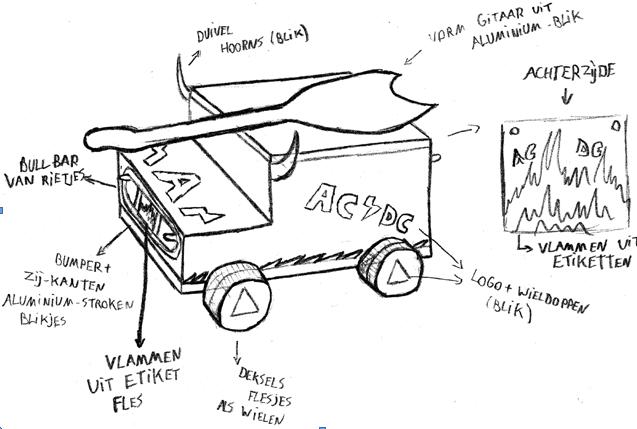 DUIVEL
HOORNS (BLIK)
VORM GITAAR UIT
ALUMINIUM-BLIK
ACHTERZIJDE
AC DC
BULLBAR
VAN RIETJES
AC⚡DC
VLAMMEN UIT
ETIKETTEN
BUMPER +
ZIJ-KANTEN
ALUMINIUM-STROKEN
BLIKJES
LOGO + WIELDOPPEN
(BLIK)
VLAMMEN
UIT ETIKET
FLES
DEKSELS
FLESJES
ALS WIELEN